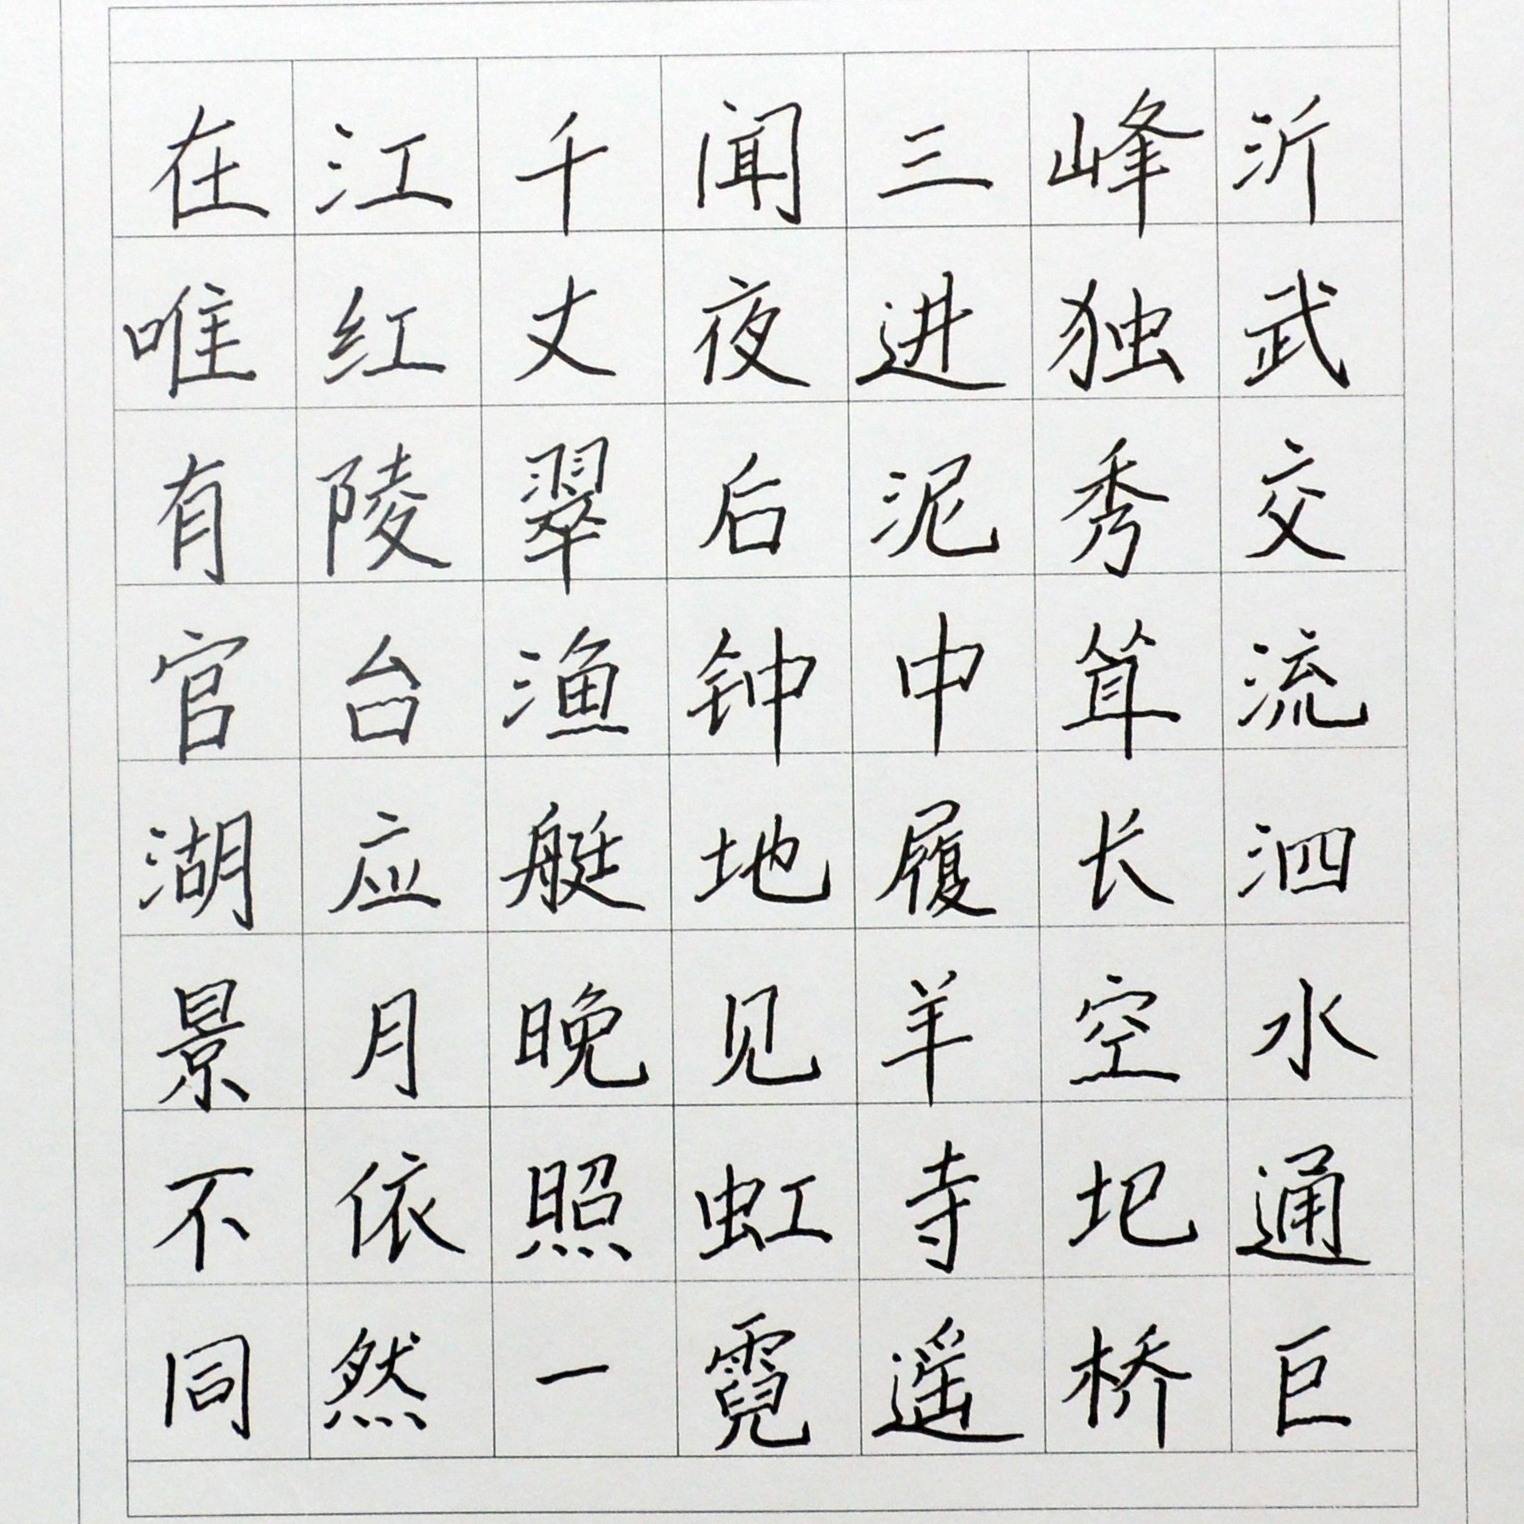 沂武交流泗水通巨
峰独秀耸长空圯桥
三进泥中履羊寺遥
闻夜后钟地见虹霓
千丈翠渔艇晚照一
江红陵台应月依然
在唯有官湖景不同